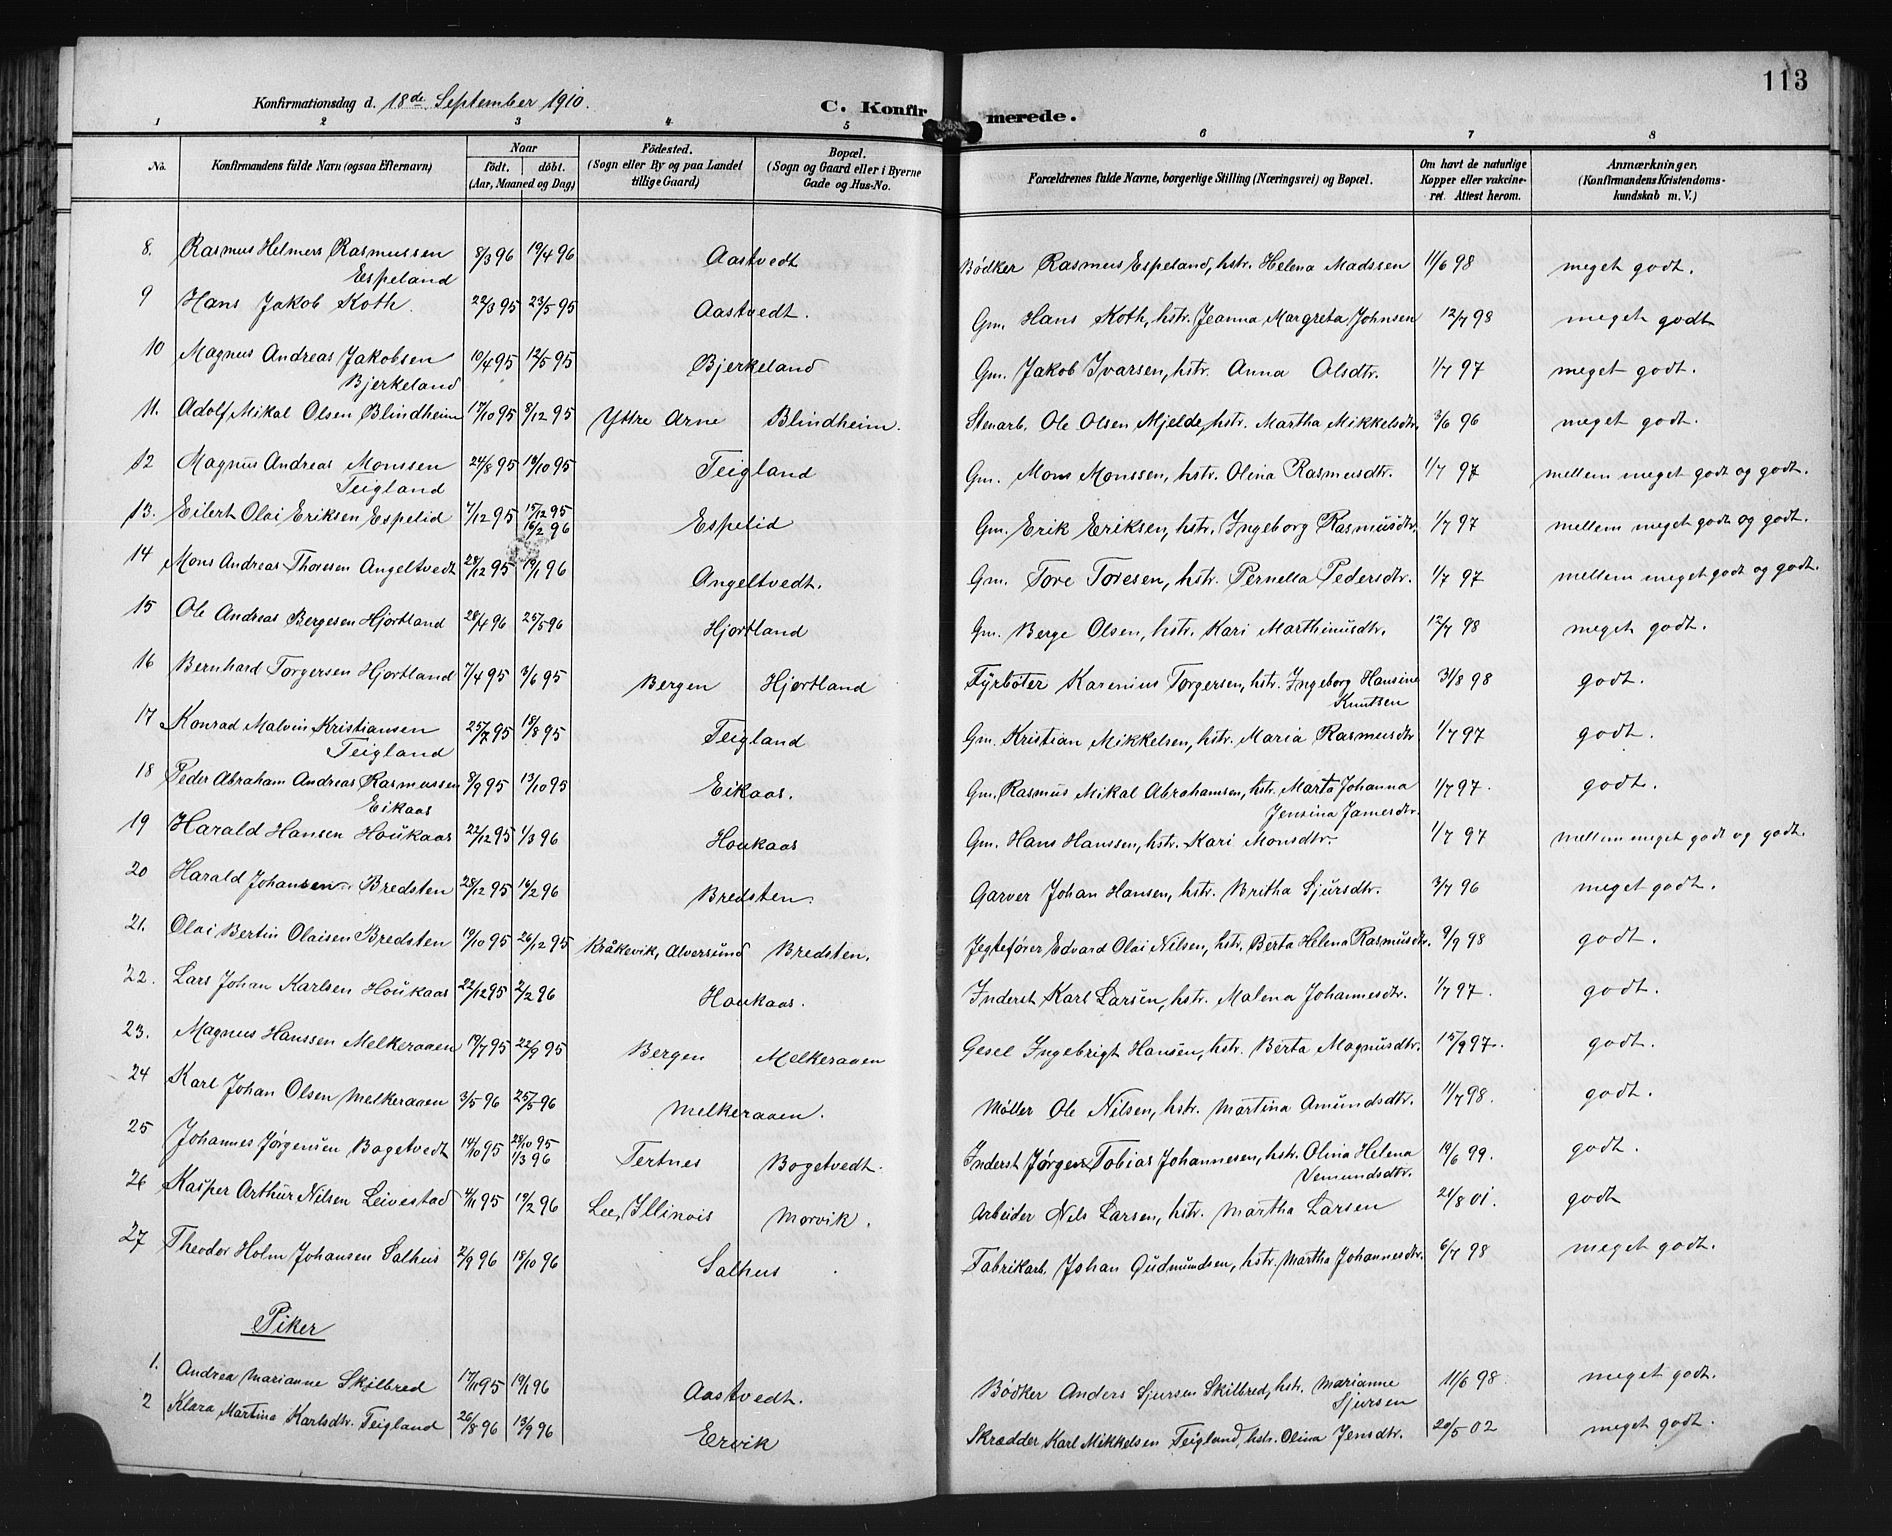 113
Konfirmationsdag d. 18de September 1910.
C. Konfirmerede.
1 2 3 4 5 6 7 8
No. Konfirmandens fulde Navn (ogsaa Efternavn) Naar født. døbt. (Aar, Maaned og Dag) Fødested. (Sogn eller By og paa Landet tillige Gaard) Bopæl. (Sogn og Gaard eller i Byerne Gade og Hus-No. Forældrenes fulde Navne, borgerlige Stilling (Næringsvei) og Bopæl. Om havt de naturlige Kopper eller vakcineret. Attest herom. Anmærkninger. (Konfirmandens Kristendomskundskab m. V.)
8. Rasmus Helmers Rasmussen Espeland 8/3 96 19/4 96 Aastvedt Bødker Rasmus Espeland, hstr. Helena Madssen 11/6 98 meget godt.
9 Hans Jakob Koth. 22/3 95 23/5 95 Aastvedt. Gm. Hans Koth, hstr. Jeanna Margreta Johnsen 12/7 98 meget godt
10 Magnus Andreas Jakobsen Bjerkeland 10/4 95 12/5 95 Bjerkeland Gm. Jakob Ivarsen, hstr. Anna Olsdtr. 1/7 97 meget godt.
11. Adolf Mikal Olsen Blindheim 17/10 95 8/12 95 Yttre Arne Blindheim. Stenarb. Ole Olsen Mjelde, hstr. Martha Mikkelsdtr. 3/6 96 meget godt.
12 Magnus Andreas Monssen Teigland 24/8 95 13/10 95 Teigland Gm. Mons Monssen, hstr. Olina Rasmusdtr. 1/7 97 mellem meget godt og godt.
13. Eilert Olai Eriksen Espelid 7/12 95 15/12 95 16/2 96 Espelid Gm. Erik Eriksen, hstr. Ingeborg Rasmusdtr. 1/7 97 mellem meget godt og godt.
14 Mons Andreas Thoresen Angeltvedt 28/12 95 19/1 96 Angeltvedt. Gm. Tore Toresen, hstr. Pernella Pedersdtr. 1/7 97 mellem meget godt og godt.
15 Ole Andreas Bergesen Hjortland 28/4 96 25/5 96 Hjortland Gm. Berge Olsen, hstr. Kari Marthinusdtr. 12/7 98 meget godt.
16 Bernhard Torgersen Hjortland 7/4 95 3/6 95 Bergen Hjortland Fyrbøter Karenius Torgersen, hstr. Ingeborg Hansine Knutsen 31/8 98 godt.
17 Konrad Malvin Kristiansen Teigland 25/7 95 18/8 95 Teigland Gm. Kristian Mikkelsen, hstr. Maria Rasmusdtr 1/7 97 godt.
18 Peder Abraham Andreas Rasmussen Eikaas 8/9 95 13/10 95 Eikaas. Gm. Rasmus Mikal Abrahamsen, hstr. Marta Johanna Jensina Jamesdtr. 1/7 97. godt.
19 Harald Hansen Houkaas 22/12 95 1/3 96 Houkaas Gm. Hans Hanssen, hstr. Kari Monsdtr. 1/7 97 mellem meget godt og godt.
20 Harald Johansen Bredsten 28/12 95 16/2 96 Bredsten. Garver Johan Hansen, hstr. Britha Sjursdtr. 3/7 96 meget godt.
21. Olai Bertin Olaisen Bredsten 19/10 95 26/12 95 Kråkevik, Alversund Bredsten. Jegtefører Edvard Olai Nilsen, hstr. Berta Helena Rasmusdtr. 9/9 98 godt.
22. Lars Johan Karlsen Houkaas 22/12 95 2/2 96 Houkaas. Inderst Karl Larsen, hstr. Malena Johannesdtr. 1/7 97. godt.
23. Magnus Hanssen Melkeraaen 19/7 95 22/9 95 Bergen Melkeraaen Gesel Ingebrigt Hansen, hstr. Berta Magnusdtr. 15/9 97. godt.
24 Karl Johan Olsen Melkeraaen 3/5 96 25/5 96 Melkeraaen. Møller Ole Nilsen, hstr. Martina Amundsdtr. 11/7 98. godt.
25 Johannes Jørgensen Bogetvedt 14/10 95 28/10 95 1/3 96 Tertnes Bogetvedt. Inderst Jørgen Tobias Johannesen, hstr. Olina Helena Vemundsdtr. 19/6 99. godt.
26 Kasper Arthur Nilsen Leivestad 4/11 95 19/2 96 Lee, Illinois Morvik. Arbeider Nels Larsen, hstr. Martha Larsen 21/8 01. godt
27 Theodor Holm Johansen Salhus 2/9 96 18/10 96 Salhus Fabrikarb. Johan Gudmundsen, hstr. Martha Johannesdtr. 6/7 98 meget godt.
Piker
1. Andrea Marianne Skilbred 17/11 95 19/1 96 Aastvedt. Bødker Anders Sjursen Skilbred, hstr. Marianne Sjursen 11/6 98. meget godt.
2 Klara Martina Karlsdtr. Teigland 26/8 96 13/9 96 Ervik Skrædder Karl Mikkelsen Teigland, hstr. Olina Jensdtr. 20/5 02 meget godt.